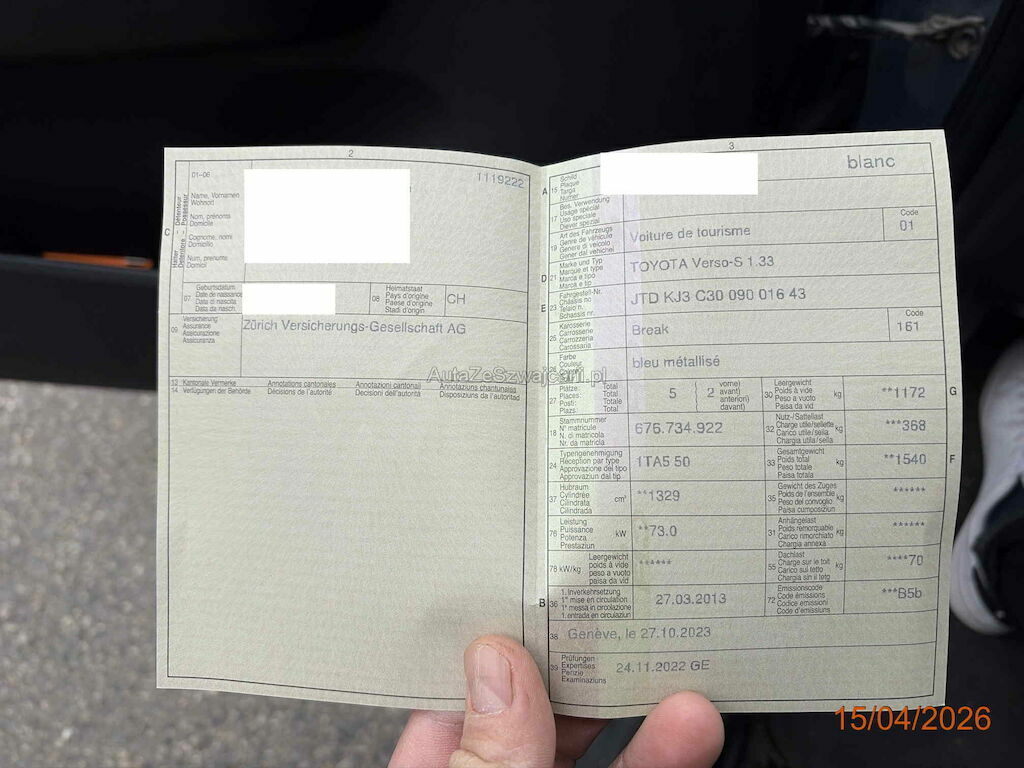 2
01–06
1119222
C
Halter – Détenteur
Detentore – Possessur
Name, Vornamen
Wohnort
Nom, prénoms
Domicile
Cognome, nomi
Domicilio
Num, prenums
Domicil
07
Geburtsdatum
Date de naissance
Data di nascita
Data da nasch.
08
Heimatstaat
Pays d'origine
Paese d'origine
Stadi d'origin
CH
09
Versicherung
Assurance
Assicurazione
Assicuranza
Zürich Versicherungs-Gesellschaft AG
13
14
Kantonale Vermerke
Verfügungen der Behörde
Annotations cantonales
Décisions de l'autorité
Annotazioni cantonali
Decisioni dell'autorità
Annotaziuns chantunalas
Disposiziuns da l'autoritad
3
A
15
Schild
Plaque
Targa
Numer
blanc
17
Bes. Verwendung
Usage spécial
Uso speciale
Diever spezial
19
Art des Fahrzeugs
Genre de véhicule
Genere di veicolo
Gener dal vehichel
Voiture de tourisme
Code
01
D
21
Marke und Typ
Marque et type
Marca e tipo
Marca e tip
TOYOTA Verso-S 1.33
E
23
Fahrgestell-Nr.
Châssis no
Telaio n.
Schassis nr.
JTD KJ3 C30 090 016 43
25
Karosserie
Carrosserie
Carrozzeria
Carossaria
Break
Code
161
Farbe
Couleur
bleu métallisé
27
Plätze: Total
Places: Total
Posti: Totale
Plazs: Total
5
2
vorne)
avant)
anteriori)
davant)
30
Leergewicht
Poids à vide
Peso a vuoto
Paisa da vid
kg
**1172
G
18
Stammnummer
N° matricule
N. di matricola
Nr. da matricla
676.734.922
32
Nutz-/Sattellast
Charge utile/sellette
Carico utile/sella
Chargia utila/sella
kg
***368
24
Typengenehmigung
Réception par type
Approvazione del tipo
Approvaziun dal tip
1TA5 50
33
Gesamtgewicht
Poids total
Peso totale
Paisa totala
kg
**1540
F
37
Hubraum
Cylindrée
Cilindrata
Cilindrada
cm³
**1329
35
Gewicht des Zuges
Poids de l'ensemble
Peso del convoglio
Paisa cumposiziun
kg
******
76
Leistung
Puissance
Potenza
Prestaziun
kW
**73.0
31
Anhängelast
Poids remorquable
Carico rimorchiato
Chargia annexa
kg
******
78
kW/kg
Leergewicht
poids à vide
peso a vuoto
paisa da vid
******
55
Dachlast
Charge sur le toit
Carico sul tetto
Chargia sin il tetg
kg
****70
B
36
1. Inverkehrsetzung
1re mise en circulation
1a messa in circolazione
1. entrada en circulaziun
27.03.2013
72
Emissionscode
Code émissions
Codice emissioni
Code d'emissiuns
***B5b
38
Genève, le 27.10.2023
39
Prüfungen
Expertises
Perizie
Examinaziuns
24.11.2022 GE
AutaZeSzwajcarii.pl
15/04/2026